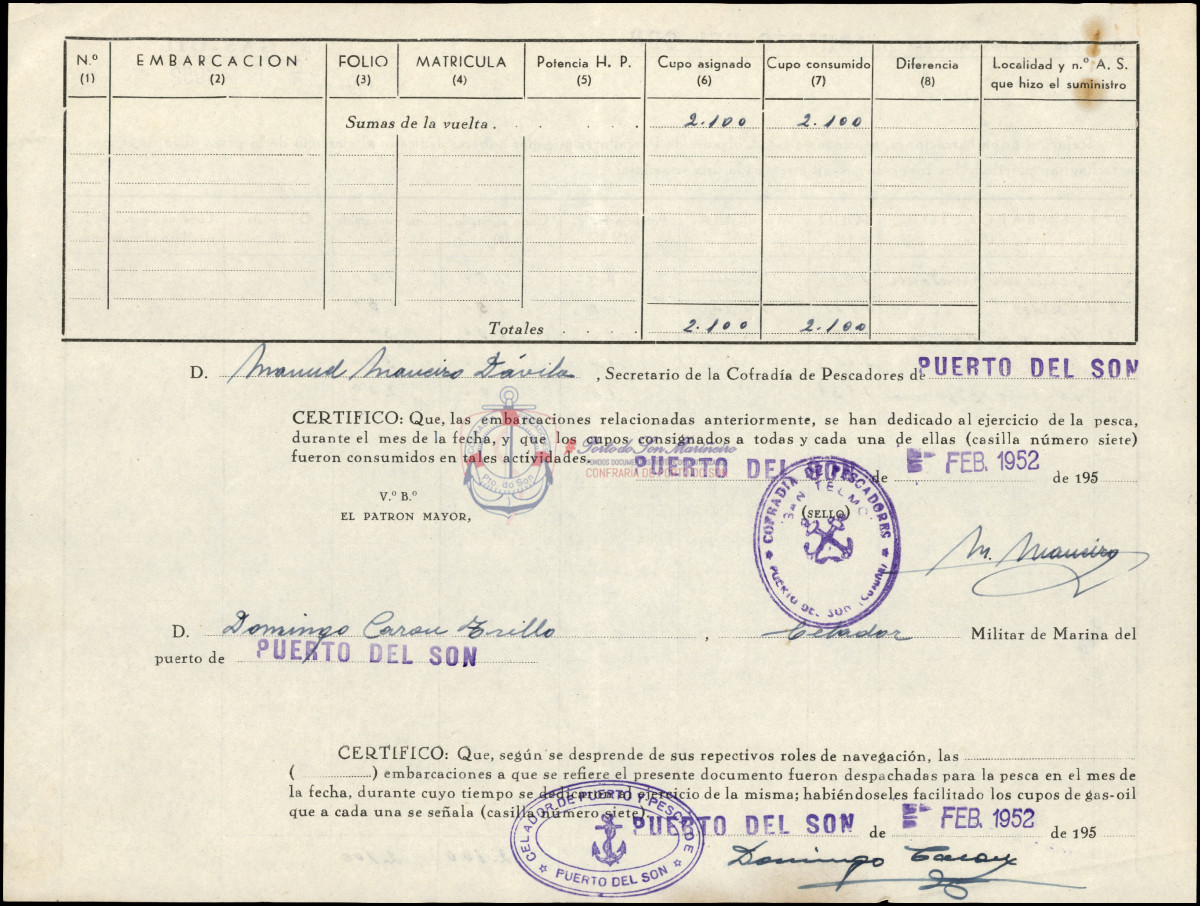 N.º EMBARCACION FOLIO MATRICULA Potencia H. P. Cupo asignado Cupo consumido Diferencia Localidad y n.º A. S.
(1) (2) (3) (4) (5) (6) (7) (8) que hizo el suministro
Sumas de la vuelta . . . . . 2.100 2.100
Totales . . . . 2.100 2.100
D. Manuel Maneiro Dávila , Secretario de la Cofradía de Pescadores de PUERTO DEL SON
CERTIFICO: Que, las embarcaciones relacionadas anteriormente, se han dedicado al ejercicio de la pesca,
durante el mes de la fecha, y que los cupos consignados a todas y cada una de ellas (casilla número siete)
fueron consumidos en tales actividades. PUERTO DEL SON de FEB. 1952 de 195
Porto do Son Marineiro
CONFRARÍA DE PORTO DO SON
Pto. do Son
V.º B.º
EL PATRON MAYOR,
(SELLO)
COFRADIA DE PESCADORES
SAN TELMO
PUERTO DEL SON (CORUÑA)
M. Maneiro
D. Domingo Carou Trillo , Celador Militar de Marina del
puerto de PUERTO DEL SON
CERTIFICO: Que, según se desprende de sus repectivos roles de navegación, las
( ) embarcaciones a que se refiere el presente documento fueron despachadas para la pesca en el mes de
la fecha, durante cuyo tiempo se dedicaron al ejercicio de la misma; habiéndoseles facilitado los cupos de gas-oil
que a cada una se señala (casilla número siete). PUERTO DEL SON de FEB. 1952 de 195
CELADOR DE PUERTO Y PESCA DE
PUERTO DEL SON
Domingo Carou